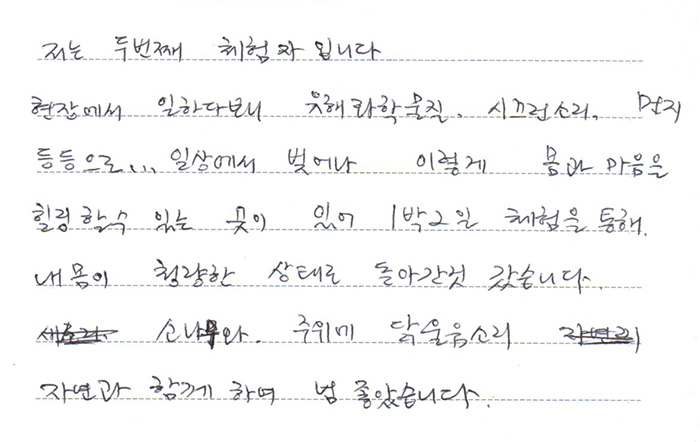 저는 두번째 체험자 입니다
현장에서 일하다보니 유해화학물질, 시끄런소리, 먼지
등등으로... 일상에서 벗어나 이렇게 몸과 마음을
힐링할수 있는 곳이 있어 1박2일 체험을 통해.
내몸이 청량한 상태로 돌아간것 같습니다.
소나무와. 주위에 닭울음소리
자연과 함께 하며 넘 좋았습니다.